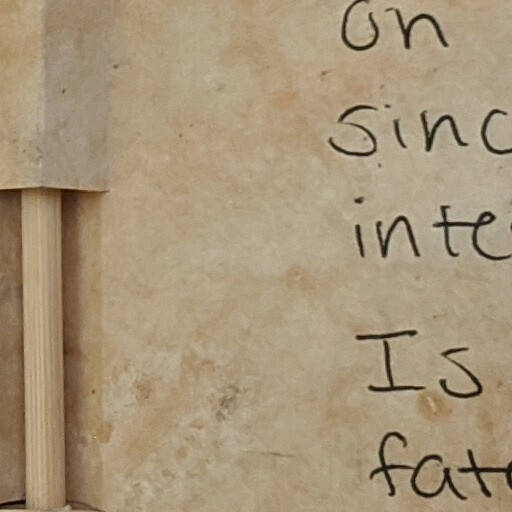 on
sinc
inte
Is
fate